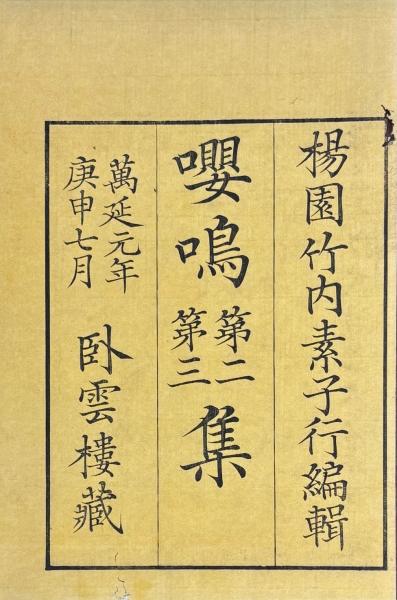 楊園竹内素子行編輯
嚶鳴第二第三集
萬延元年
庚申七月
臥雲樓藏